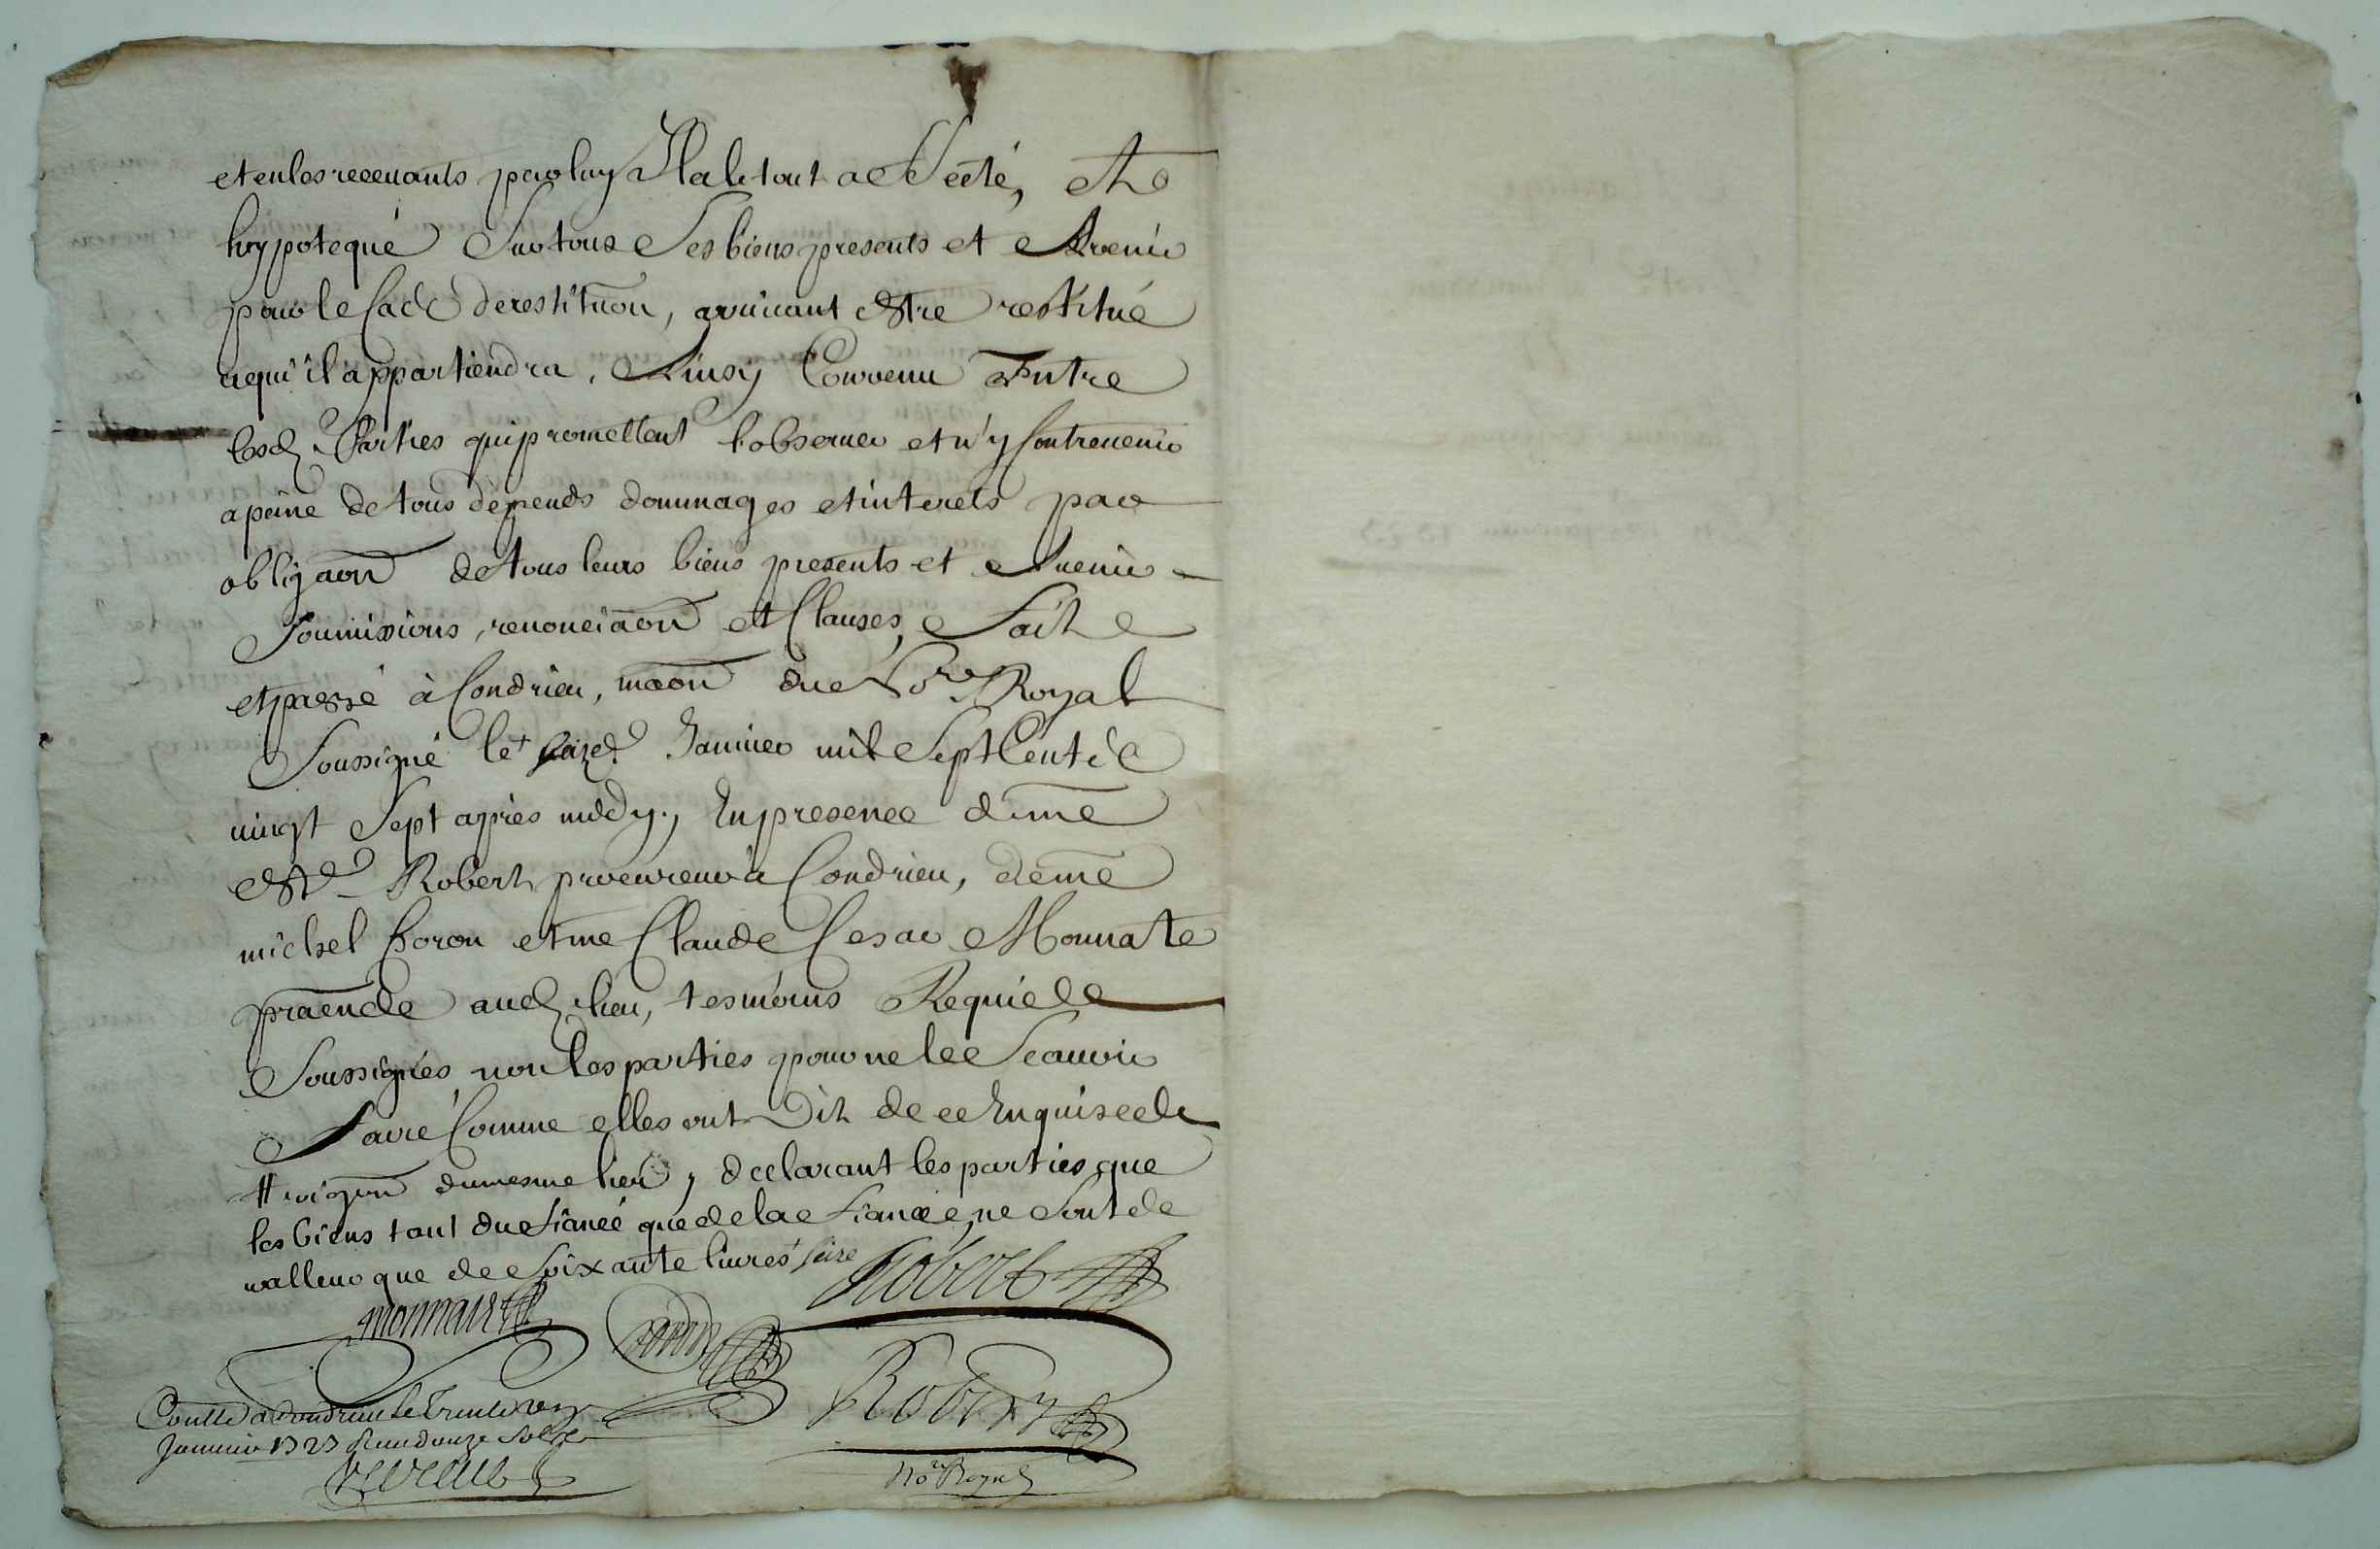 et en les recevants par luy Il a le tout affecté, et
hypotequé sur tous ses biens presents et Avenir
pour le Cas de restituon, avenant estre restitué
a qui il appartiendra, Ainsy Convenu Entre
lesd. Parties qui promettent l'observer et n'y Contrevenir
a peine de tous depends dommages et interets par
obligaon de tous leurs biens presents et Avenir
soumissions, renonciaon et Clauses, Fait
et passé à Condrieu, maon du No.re Royal
soussigné le Janvier mil sept Cent
vingt sept après midy, En presence de me
Robert procureur à Condrieu, de me
michel Coron et me Claude Cesar Monnate
praen de aud. lieu, tesmoins Requis
soussignés, non les parties pour ne le scavoir
faire Comme elles ont Dit de ce Enquise de
du mesme lieu, declarant les parties que
les biens tant du fiancé que de la fiancée, ne sont de
valleur que de soixante livres
Robert
Robert
Conllé a Condrieu le trente
Janvier 1727 Receu douze sols
No.re Royal